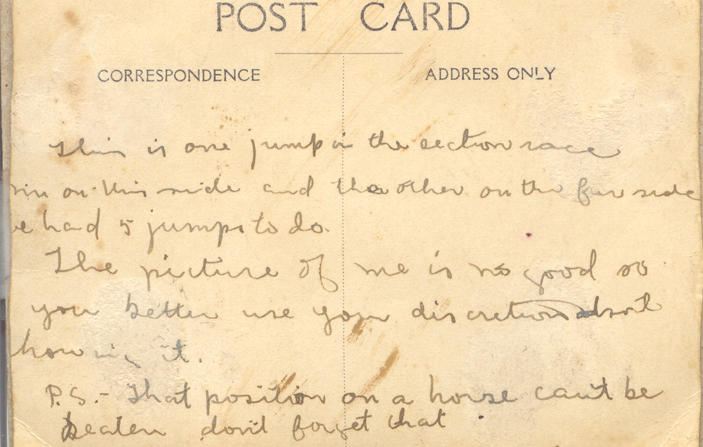 POST CARD
CORRESPONDENCE
ADDRESS ONLY
This is one jump in the section race
on this side and the other on the far side
had 5 jumps to do.
The picture of me is no good so
you better use your discretion about
it.
P.S.- That position on a horse can't be
beaten don't forget that